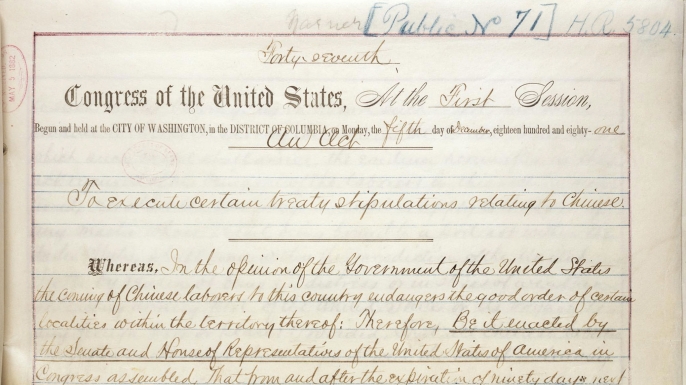 [Public No 71] H.R. 5804.
MAY 5 1882
Forty-seventh
Congress of the United States, At the First Session,
Begun and held at the CITY OF WASHINGTON, in the DISTRICT OF COLUMBIA, on Monday, the fifth day of December, eighteen hundred and eighty-one
An Act
To execute certain treaty stipulations relating to Chinese.
Whereas, In the opinion of the Government of the United States
the coming of Chinese laborers to this country endangers the good order of certain
localities within the territory thereof: Therefore, Be it enacted by
the Senate and House of Representatives of the United States of America in
Congress assembled, That from and after the expiration of ninety days next